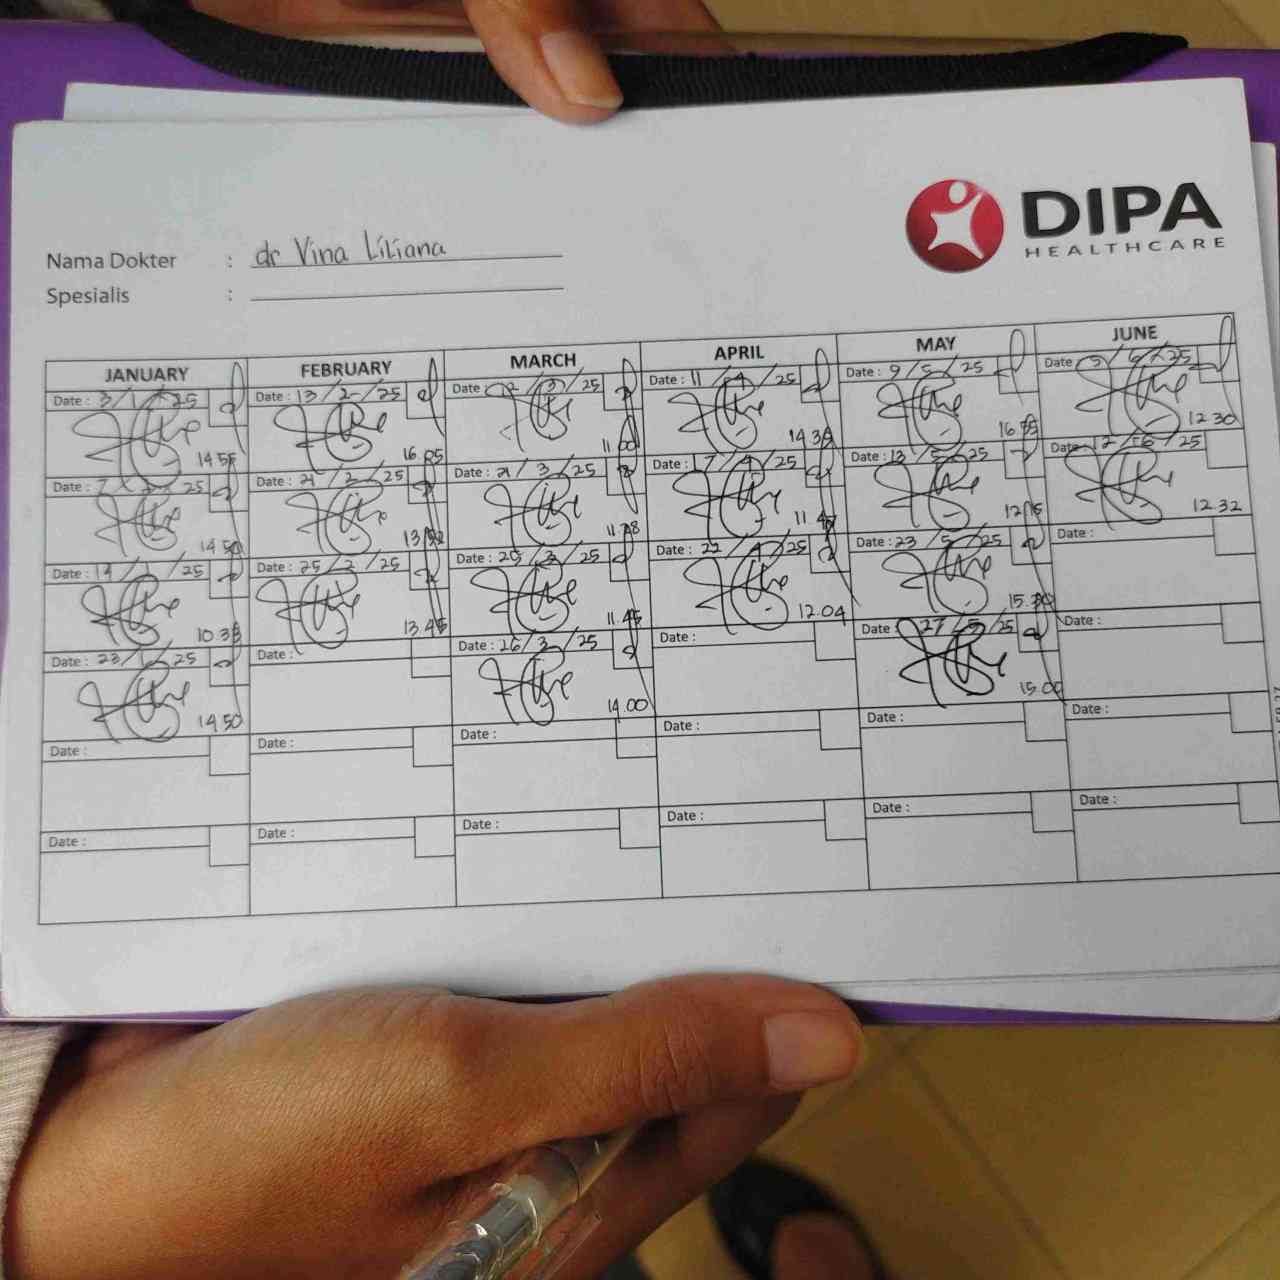 DIPA
HEALTHCARE
Nama Dokter : dr Vina Liliana
Spesialis :
JANUARY FEBRUARY MARCH APRIL MAY JUNE
Date : 3/1/25 Date : 13/2/25 Date /3/25 Date : 11/4/25 Date : 9/5/25 Date 5/6/25
14.55 16.05 11.00 14.35 16.55 12.30
Date : 7/1/25 Date : 21/2/25 Date : 21/3/25 Date : 17/4/25 Date : 13/5/25 Date : 12/6/25
14.50 13.52 11.28 11.47 12.15 12.32
Date : 14/1/25 Date : 25/2/25 Date : 25/3/25 Date : 22/4/25 Date : 23/5/25 Date :
10.35 13.45 11.45 12.04 15.30
Date : 23/1/25 Date : Date : 26/3/25 Date : Date : 27/5/25 Date :
14.50 14.00 15.00
Date : Date : Date : Date : Date : Date :
Date : Date : Date : Date : Date : Date :